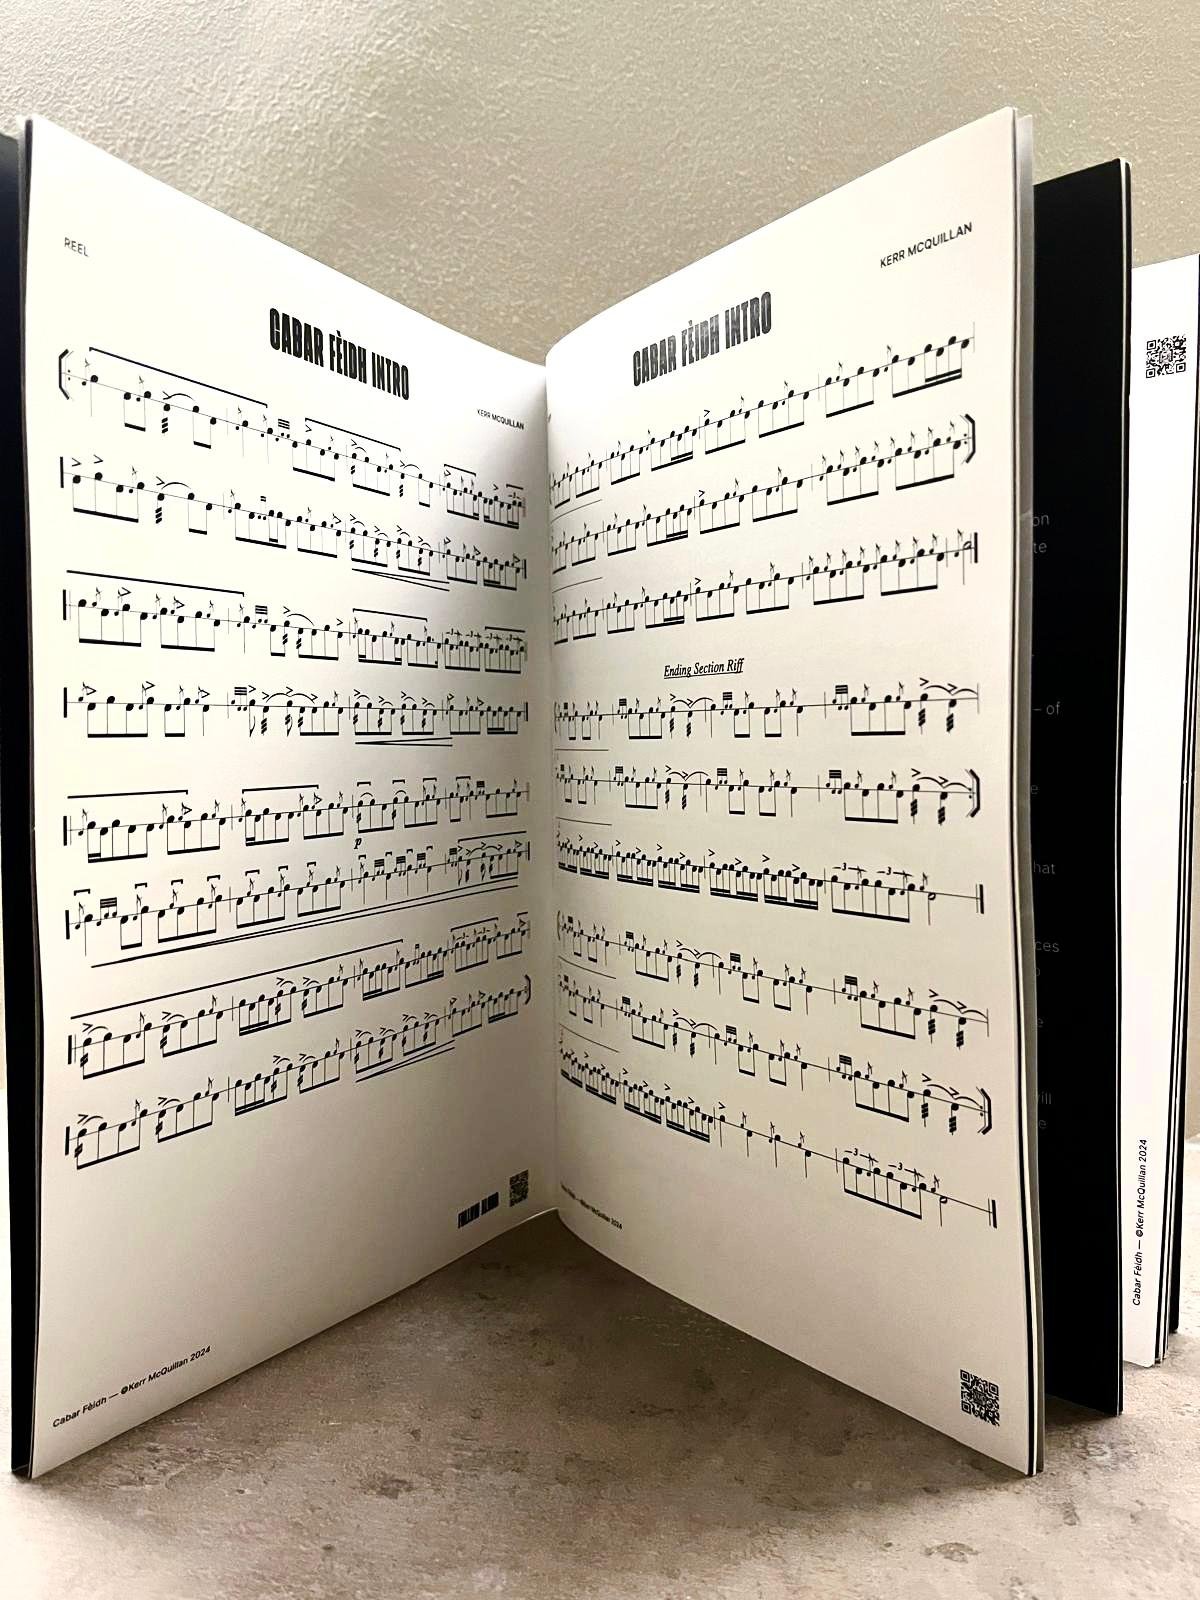 REEL
CABAR FÈIDH INTRO
KERR MCQUILLAN
p
3 3
FOLLOW ALONG
Cabar Fèidh — ©Kerr McQuillan 2024
KERR MCQUILLAN
CABAR FÈIDH INTRO
Ending Section Riff
3 3
3 3
Kerr McQuillan 2024
te
– of
hat
Cabar Fèidh — ©Kerr McQuillan 2024